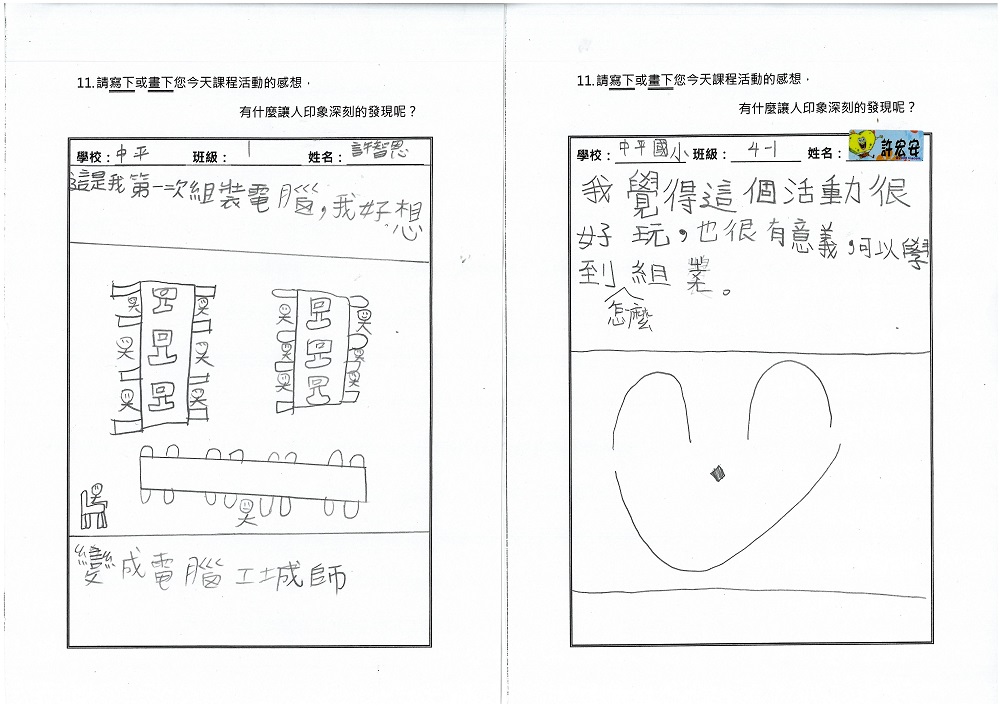 11.請寫下或畫下您今天課程活動的感想，
有什麼讓人印象深刻的發現呢？
學校：中平 班級：1 姓名：許智恩
這是我第一次組裝電腦，我好想
變成電腦工城師
11.請寫下或畫下您今天課程活動的感想，
有什麼讓人印象深刻的發現呢？
學校：中平國小 班級：4-1 姓名：許宏安
我覺得這個活動很
好玩，也很有意義，可以學
到組業。
怎麼